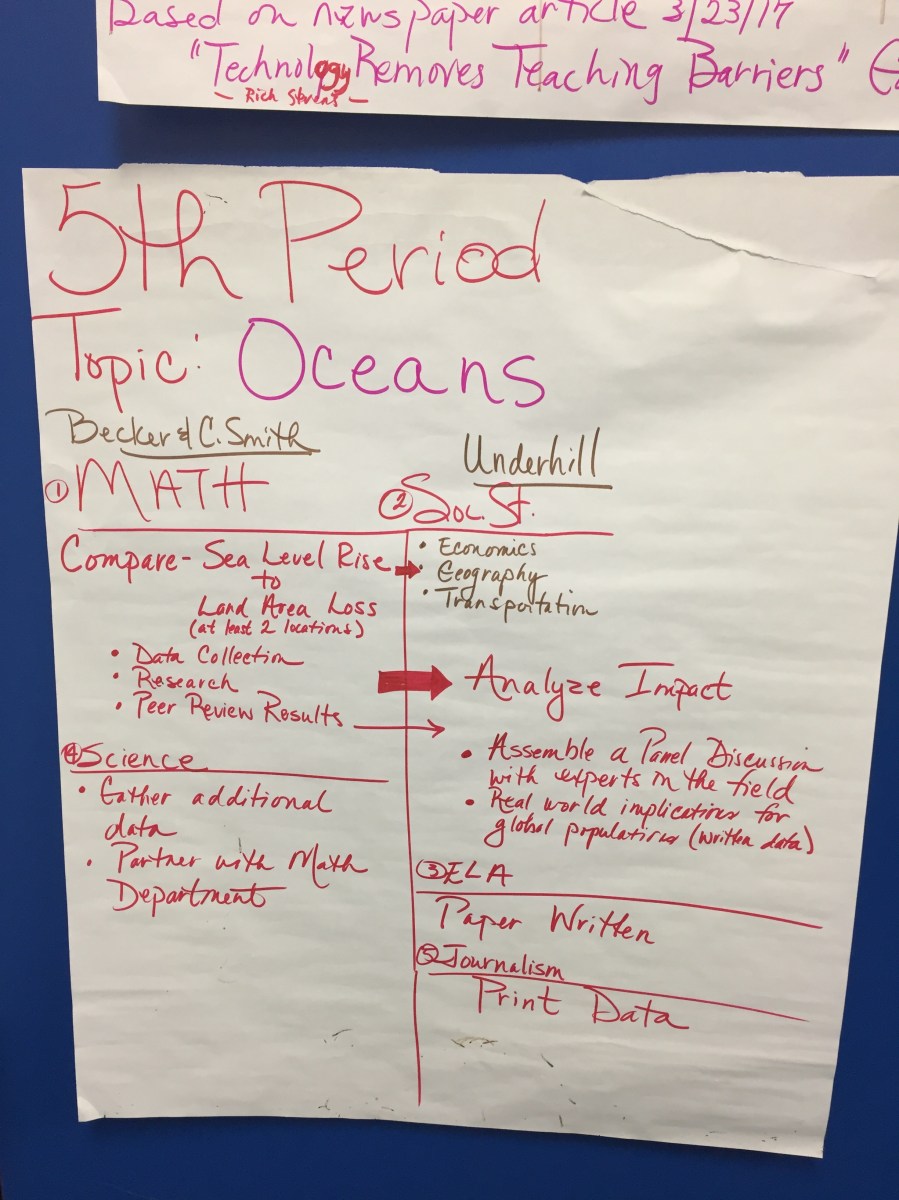 Based on newspaper article 3/23/17
"Technology Removes Teaching Barriers"
- Rich
5th Period
Topic: Oceans
Becker & C. Smith
① MATH
Compare - Sea Level Rise
to
Land Area Loss
(at least 2 locations)
• Data Collection
• Research
• Peer Review Results
④ Science
• Gather additional
data
• Partner with Math
Department
Underhill
② Soc. St.
• Economics
• Geography
• Transportation
Analyze Impact
• Assemble a Panel Discussion
with experts in the field
• Real world implications for
global populations (written data)
③ ELA
Paper Written
⑤ Journalism
Print Data